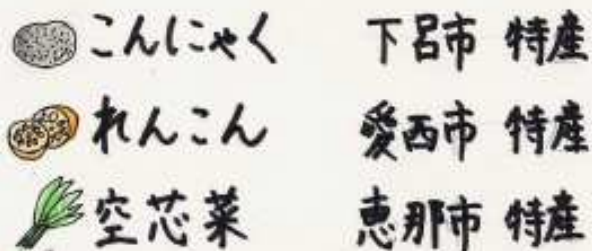 こんにゃく 下呂市 特産
れんこん 愛西市 特産
空芯菜 恵那市 特産